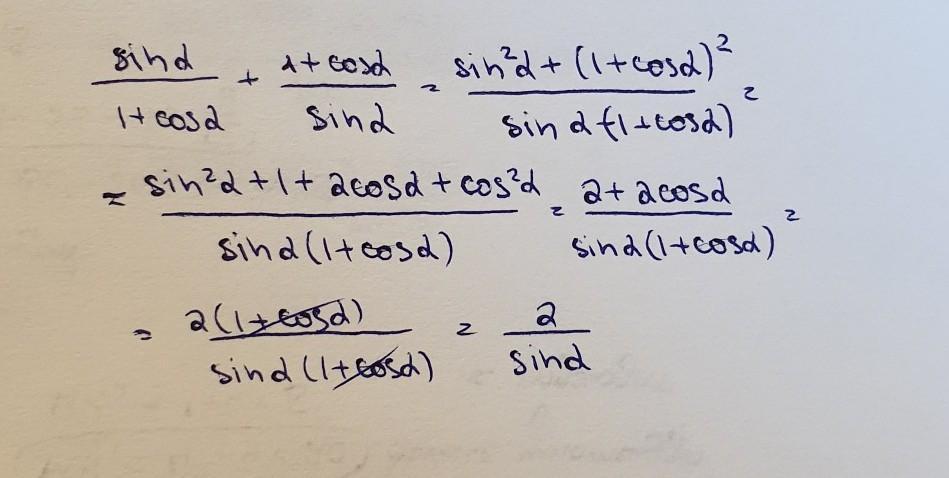 sinα/(1+cosα) + (1+cosα)/sinα = (sin²α + (1+cosα)²)/(sinα(1+cosα)) =
= (sin²α + 1 + 2cosα + cos²α)/(sinα(1+cosα)) = (2 + 2cosα)/(sinα(1+cosα)) =
= 2(1+cosα)/(sinα(1+cosα)) = 2/sinα